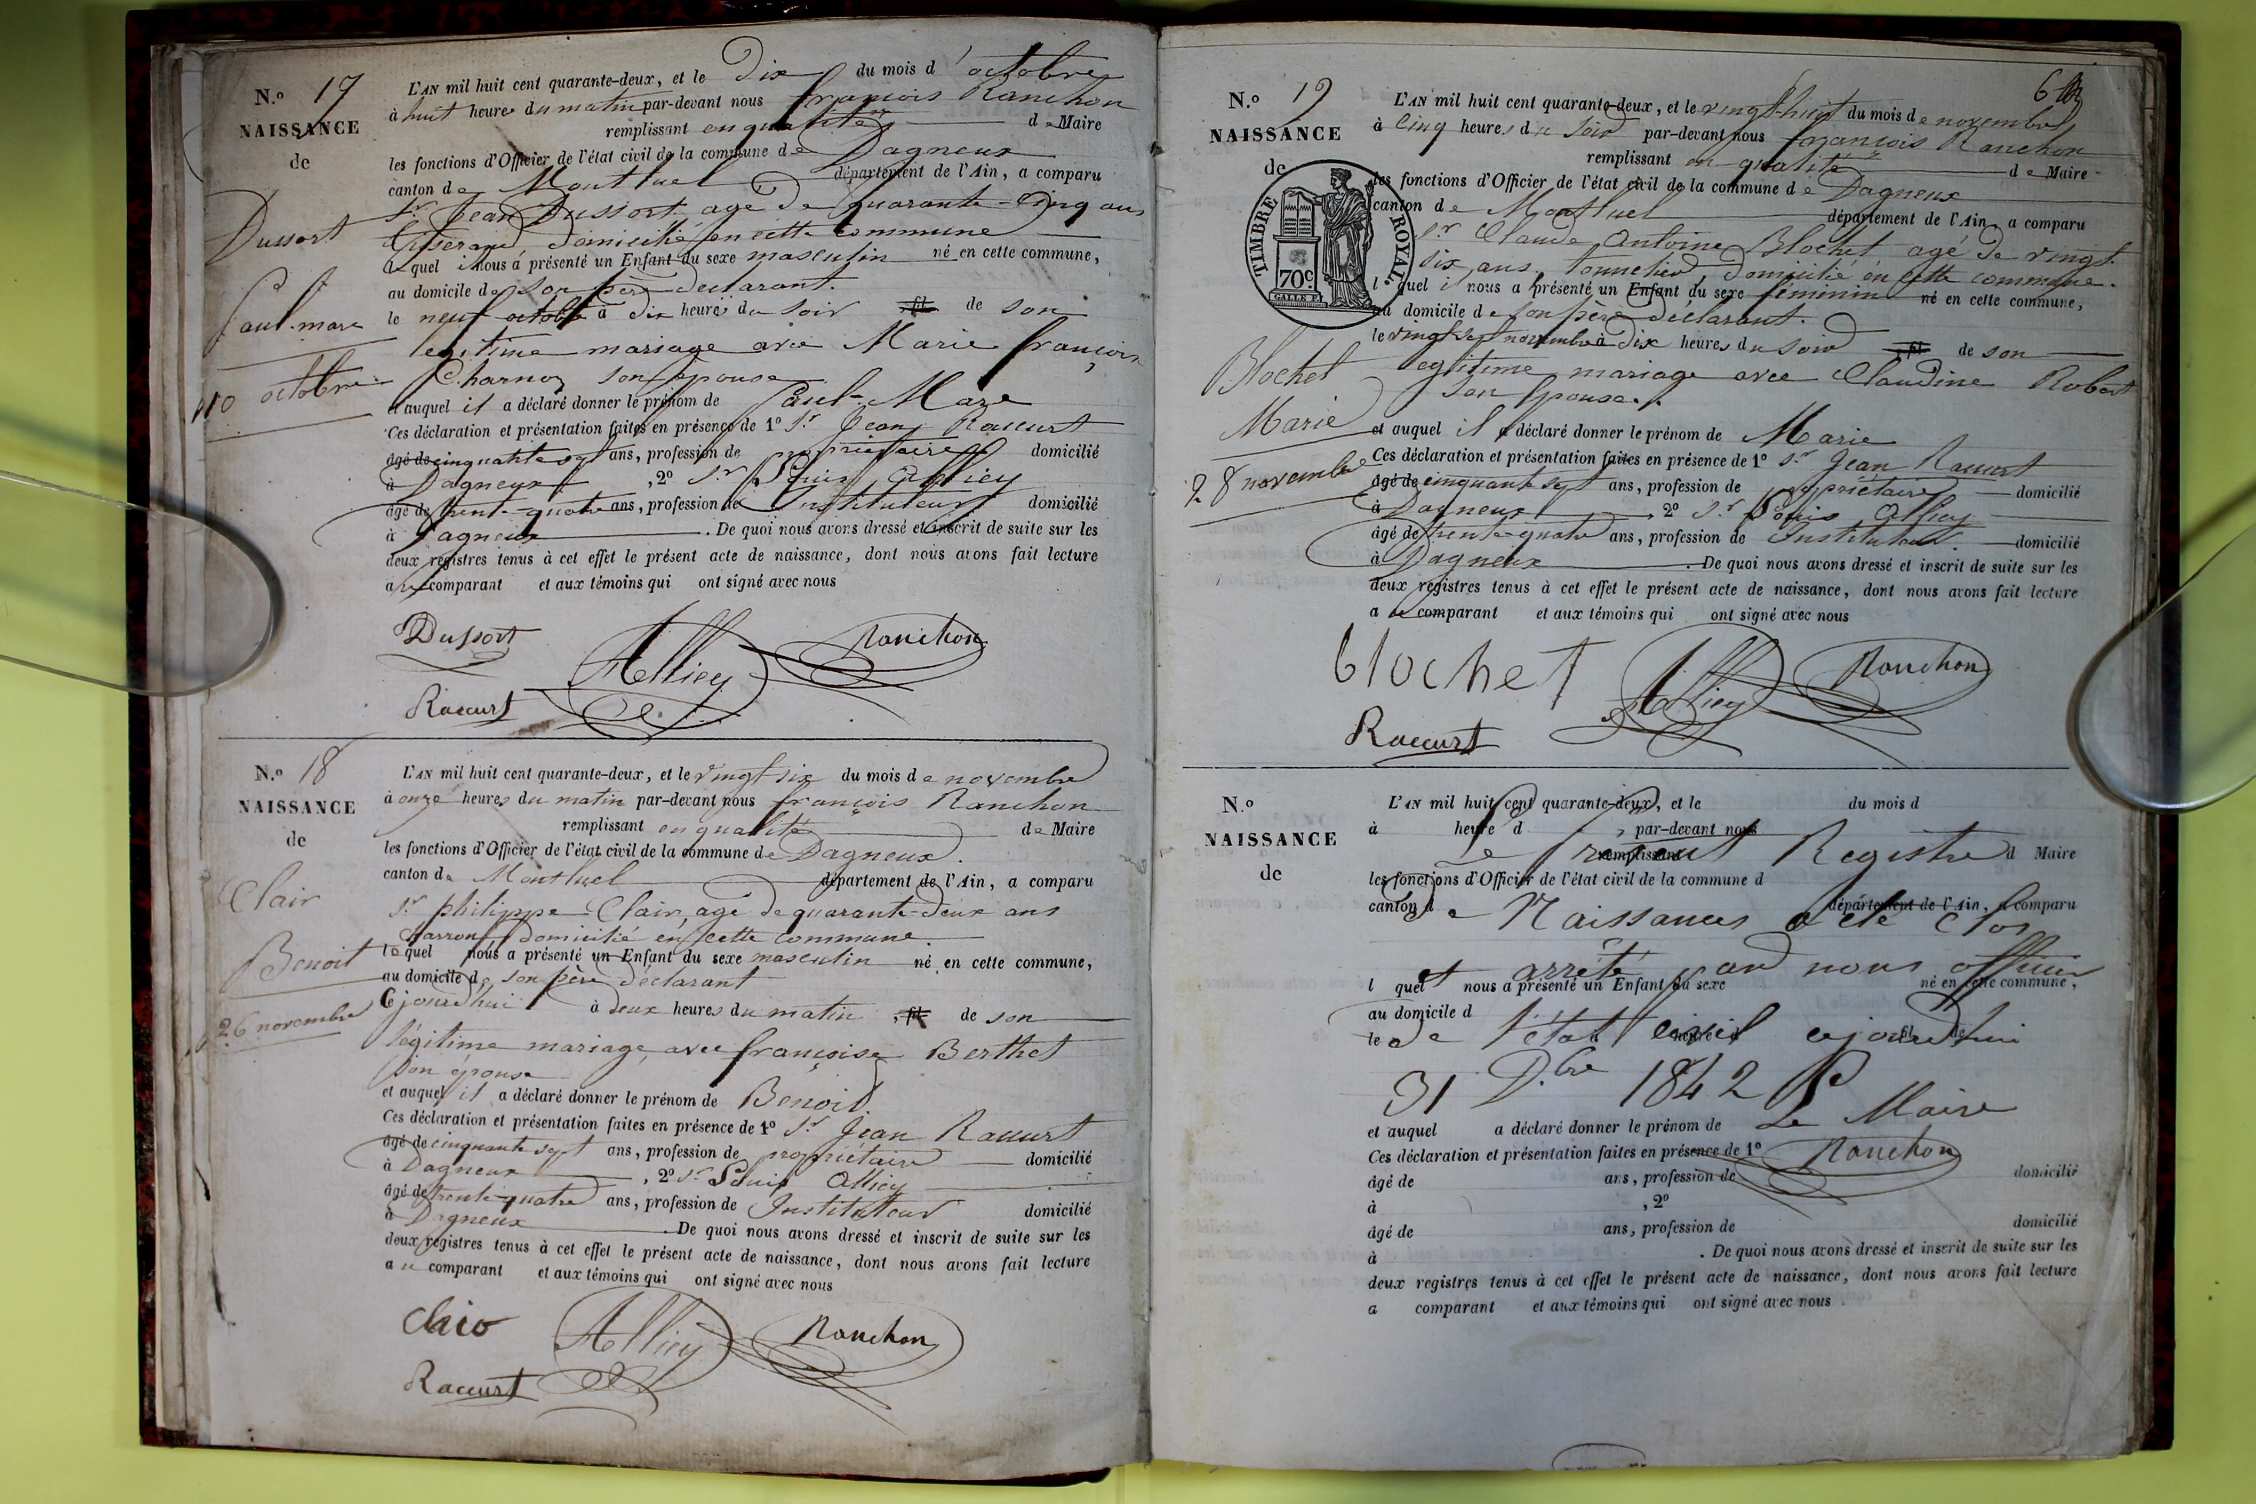 N.o 17
NAISSANCE
de
Dussort
Paul-marc
10 octobre
L'AN mil huit cent quarante-deux, et le dix du mois d'octobre
à huit heures du matin par-devant nous françois Ranchon
remplissant en qualité de Maire
les fonctions d'Officier de l'état civil de la commune de Dagneux
canton de Montluel département de l'Ain, a comparu
Sr Jean Dussort agé de quarante-cinq ans
tisserand, domicilié en cette commune
lequel il nous a présenté un Enfant du sexe masculin né en cette commune,
au domicile de son père déclarant.
le neuf octobre à dix heures du soir fil de son
legitime mariage avec Marie françoise
Charnoz son épouse
et auquel il a déclaré donner le prénom de Paul-Marc
Ces déclaration et présentation faites en présence de 1o Sr Jean Raccurt
âgé de cinquante sept ans, profession de propriétaire domicilié
à Dagneux, 2o Sr Louis Alliey
âgé de trente-quatre ans, profession de Instituteur domicilié
à Dagneux. De quoi nous avons dressé et inscrit de suite sur les
deux registres tenus à cet effet le présent acte de naissance, dont nous avons fait lecture
au comparant et aux témoins qui ont signé avec nous
Dussort
Alliey
Ranchon
Raccurt
N.o 18
NAISSANCE
de
Clair
Benoit
26 novembre
L'AN mil huit cent quarante-deux, et le vingt six du mois de novembre
à onze heures du matin par-devant nous françois Ranchon
remplissant en qualité de Maire
les fonctions d'Officier de l'état civil de la commune de Dagneux.
canton de Montluel département de l'Ain, a comparu
Sr philippe Clair, agé de quarante-deux ans
charron, domicilié en cette commune.
lequel nous a présenté un Enfant du sexe masculin né en cette commune,
au domicile de son père déclarant
Cejourd'hui à deux heures du matin, fil de son
légitime mariage avec françoise Berthet
son épouse
et auquel il a déclaré donner le prénom de Benoit.
Ces déclaration et présentation faites en présence de 1o Sr Jean Raccurt
âgé de cinquante sept ans, profession de propriétaire domicilié
à Dagneux, 2o Sr Louis Alliey
âgé de trente-quatre ans, profession de Instituteur domicilié
à Dagneux. De quoi nous avons dressé et inscrit de suite sur les
deux registres tenus à cet effet le présent acte de naissance, dont nous avons fait lecture
au comparant et aux témoins qui ont signé avec nous
Clair
Alliey
Ranchon
Raccurt
N.o 19
NAISSANCE
de
TIMBRE ROYAL
70c
Blochet
Marie
28 novembre
L'AN mil huit cent quarante-deux, et le vingt-huit du mois de novembre
à cinq heures du soir par-devant nous françois Ranchon
remplissant en qualité de Maire
les fonctions d'Officier de l'état civil de la commune de Dagneux
canton de Montluel département de l'Ain, a comparu
Sr Claude Antoine Blochet agé de vingt
six ans, tonnelier, domicilié en cette commune.
lequel il nous a présenté un Enfant du sexe féminin né en cette commune,
au domicile de son père déclarant.
le vingt sept novembre à dix heures du soir fil de son
legitime mariage avec Claudine Robert
son épouse.
et auquel il a déclaré donner le prénom de Marie
Ces déclaration et présentation faites en présence de 1o Sr Jean Raccurt
âgé de cinquante sept ans, profession de propriétaire domicilié
à Dagneux, 2o Sr Louis Alliey
âgé de trente-quatre ans, profession de Instituteur. domicilié
à Dagneux. De quoi nous avons dressé et inscrit de suite sur les
deux registres tenus à cet effet le présent acte de naissance, dont nous avons fait lecture
au comparant et aux témoins qui ont signé avec nous
blochet
Alliey
Ranchon
Raccurt
N.o
NAISSANCE
de
L'AN mil huit cent quarante-deux, et le du mois d
à heure d , par-devant nous
Le présent Registre
remplissant d Maire
les fonctions d'Officier de l'état civil de la commune d
canton d département de l'Ain, a comparu
de Naissances a été Clos
et arrêté par nous officier
l quel nous a présenté un Enfant du sexe né en cette commune,
au domicile d
de l'état civil cejourd'hui
31 D.bre 1842
Le Maire
et auquel a déclaré donner le prénom de
Ces déclaration et présentation faites en présence de 1o
Ranchon
âgé de ans, profession de domicilié
à , 2o
âgé de ans, profession de domicilié
à . De quoi nous avons dressé et inscrit de suite sur les
deux registres tenus à cet effet le présent acte de naissance, dont nous avons fait lecture
a comparant et aux témoins qui ont signé avec nous.